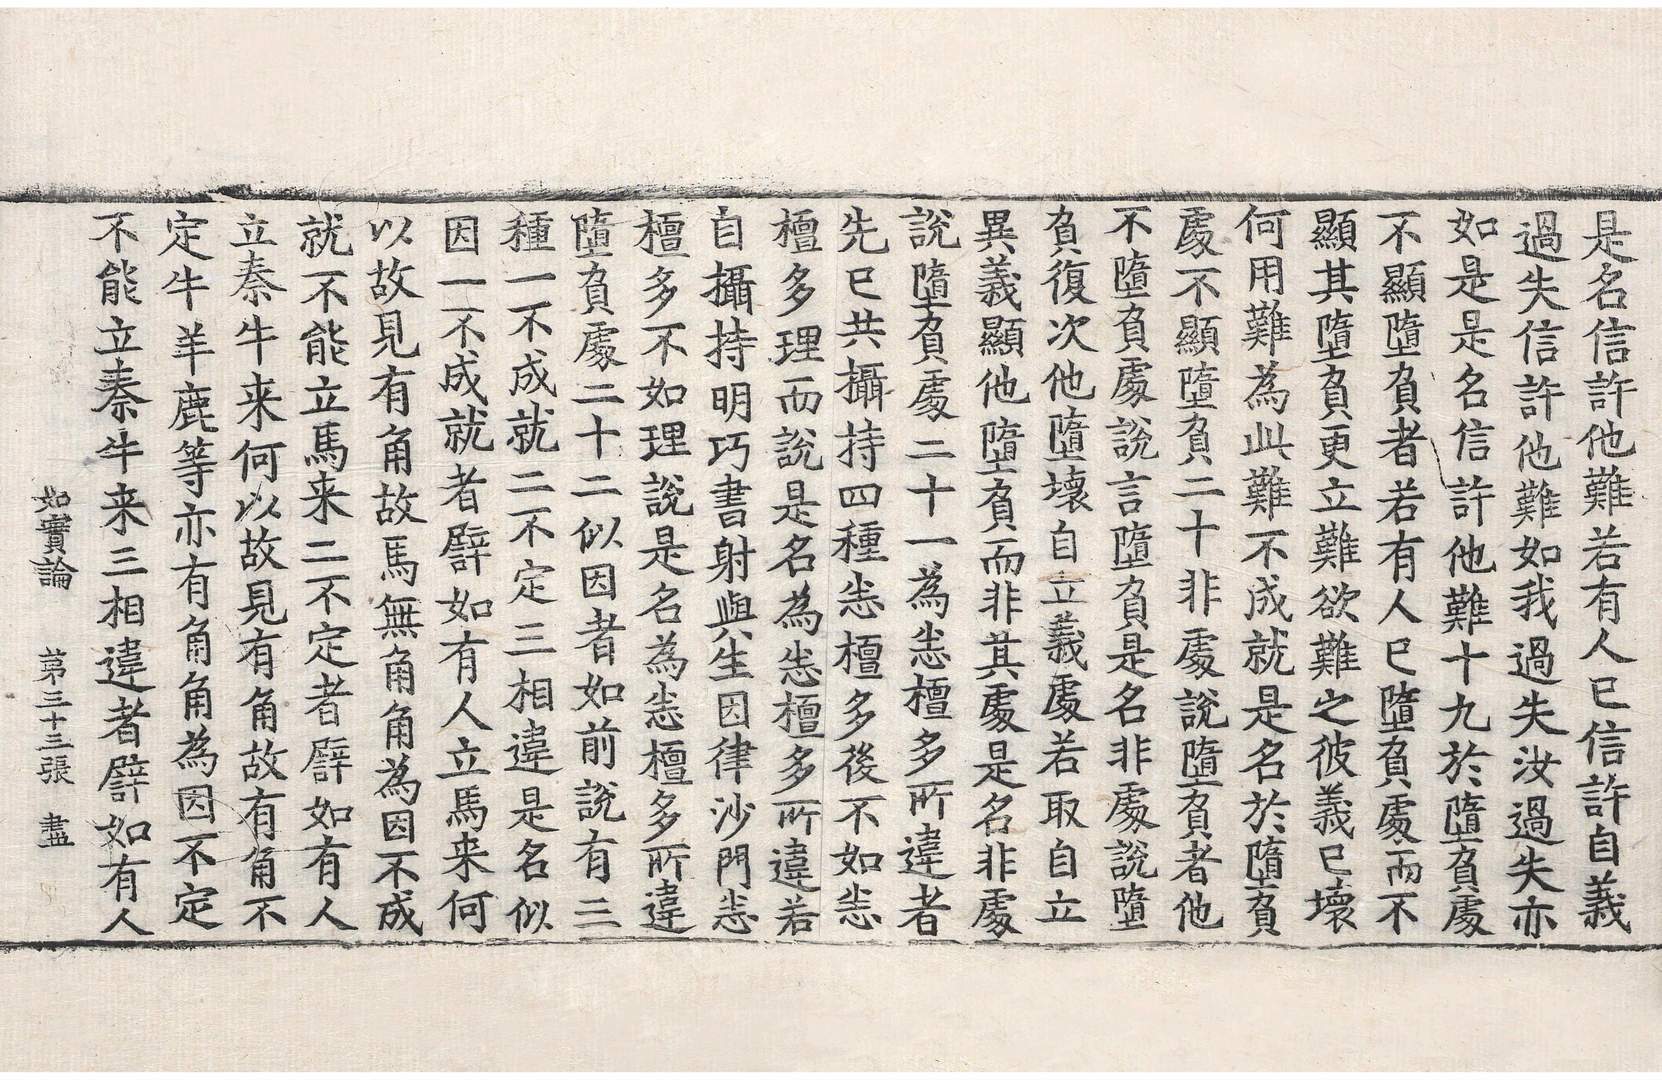 是名信許他難若有人已信許自義
過失信許他難如我過失汝過失亦
如是是名信許他難十九於墮負處
不顯墮負者若有人已墮負處而不
顯其墮負更立難欲難之彼義已壞
何用難為此難不成就是名於墮負
處不顯墮負二十非處說墮負者他
不墮負處說言墮負是名非處說墮
負復次他墮壞自立義處若取自立
異義顯他墮負而非其處是名非處
說墮負處二十一為悉檀多所違者
先已共攝持四種悉檀多後不如悉
檀多理而說是名為悉檀多所違若
自攝持明巧書射與生因律沙門悉
檀多不如理說是名為悉檀多所違
墮負處二十二似因者如前說有三
種一不成就二不定三相違是名似
因一不成就者譬如有人立馬来何
以故見有角故馬無角角為因不成
就不能立馬来二不定者譬如有人
立秦牛来何以故見有角故有角不
定牛羊鹿等亦有角角為因不定
不能立秦牛来三相違者譬如有人
如實論　第三十三張　盡